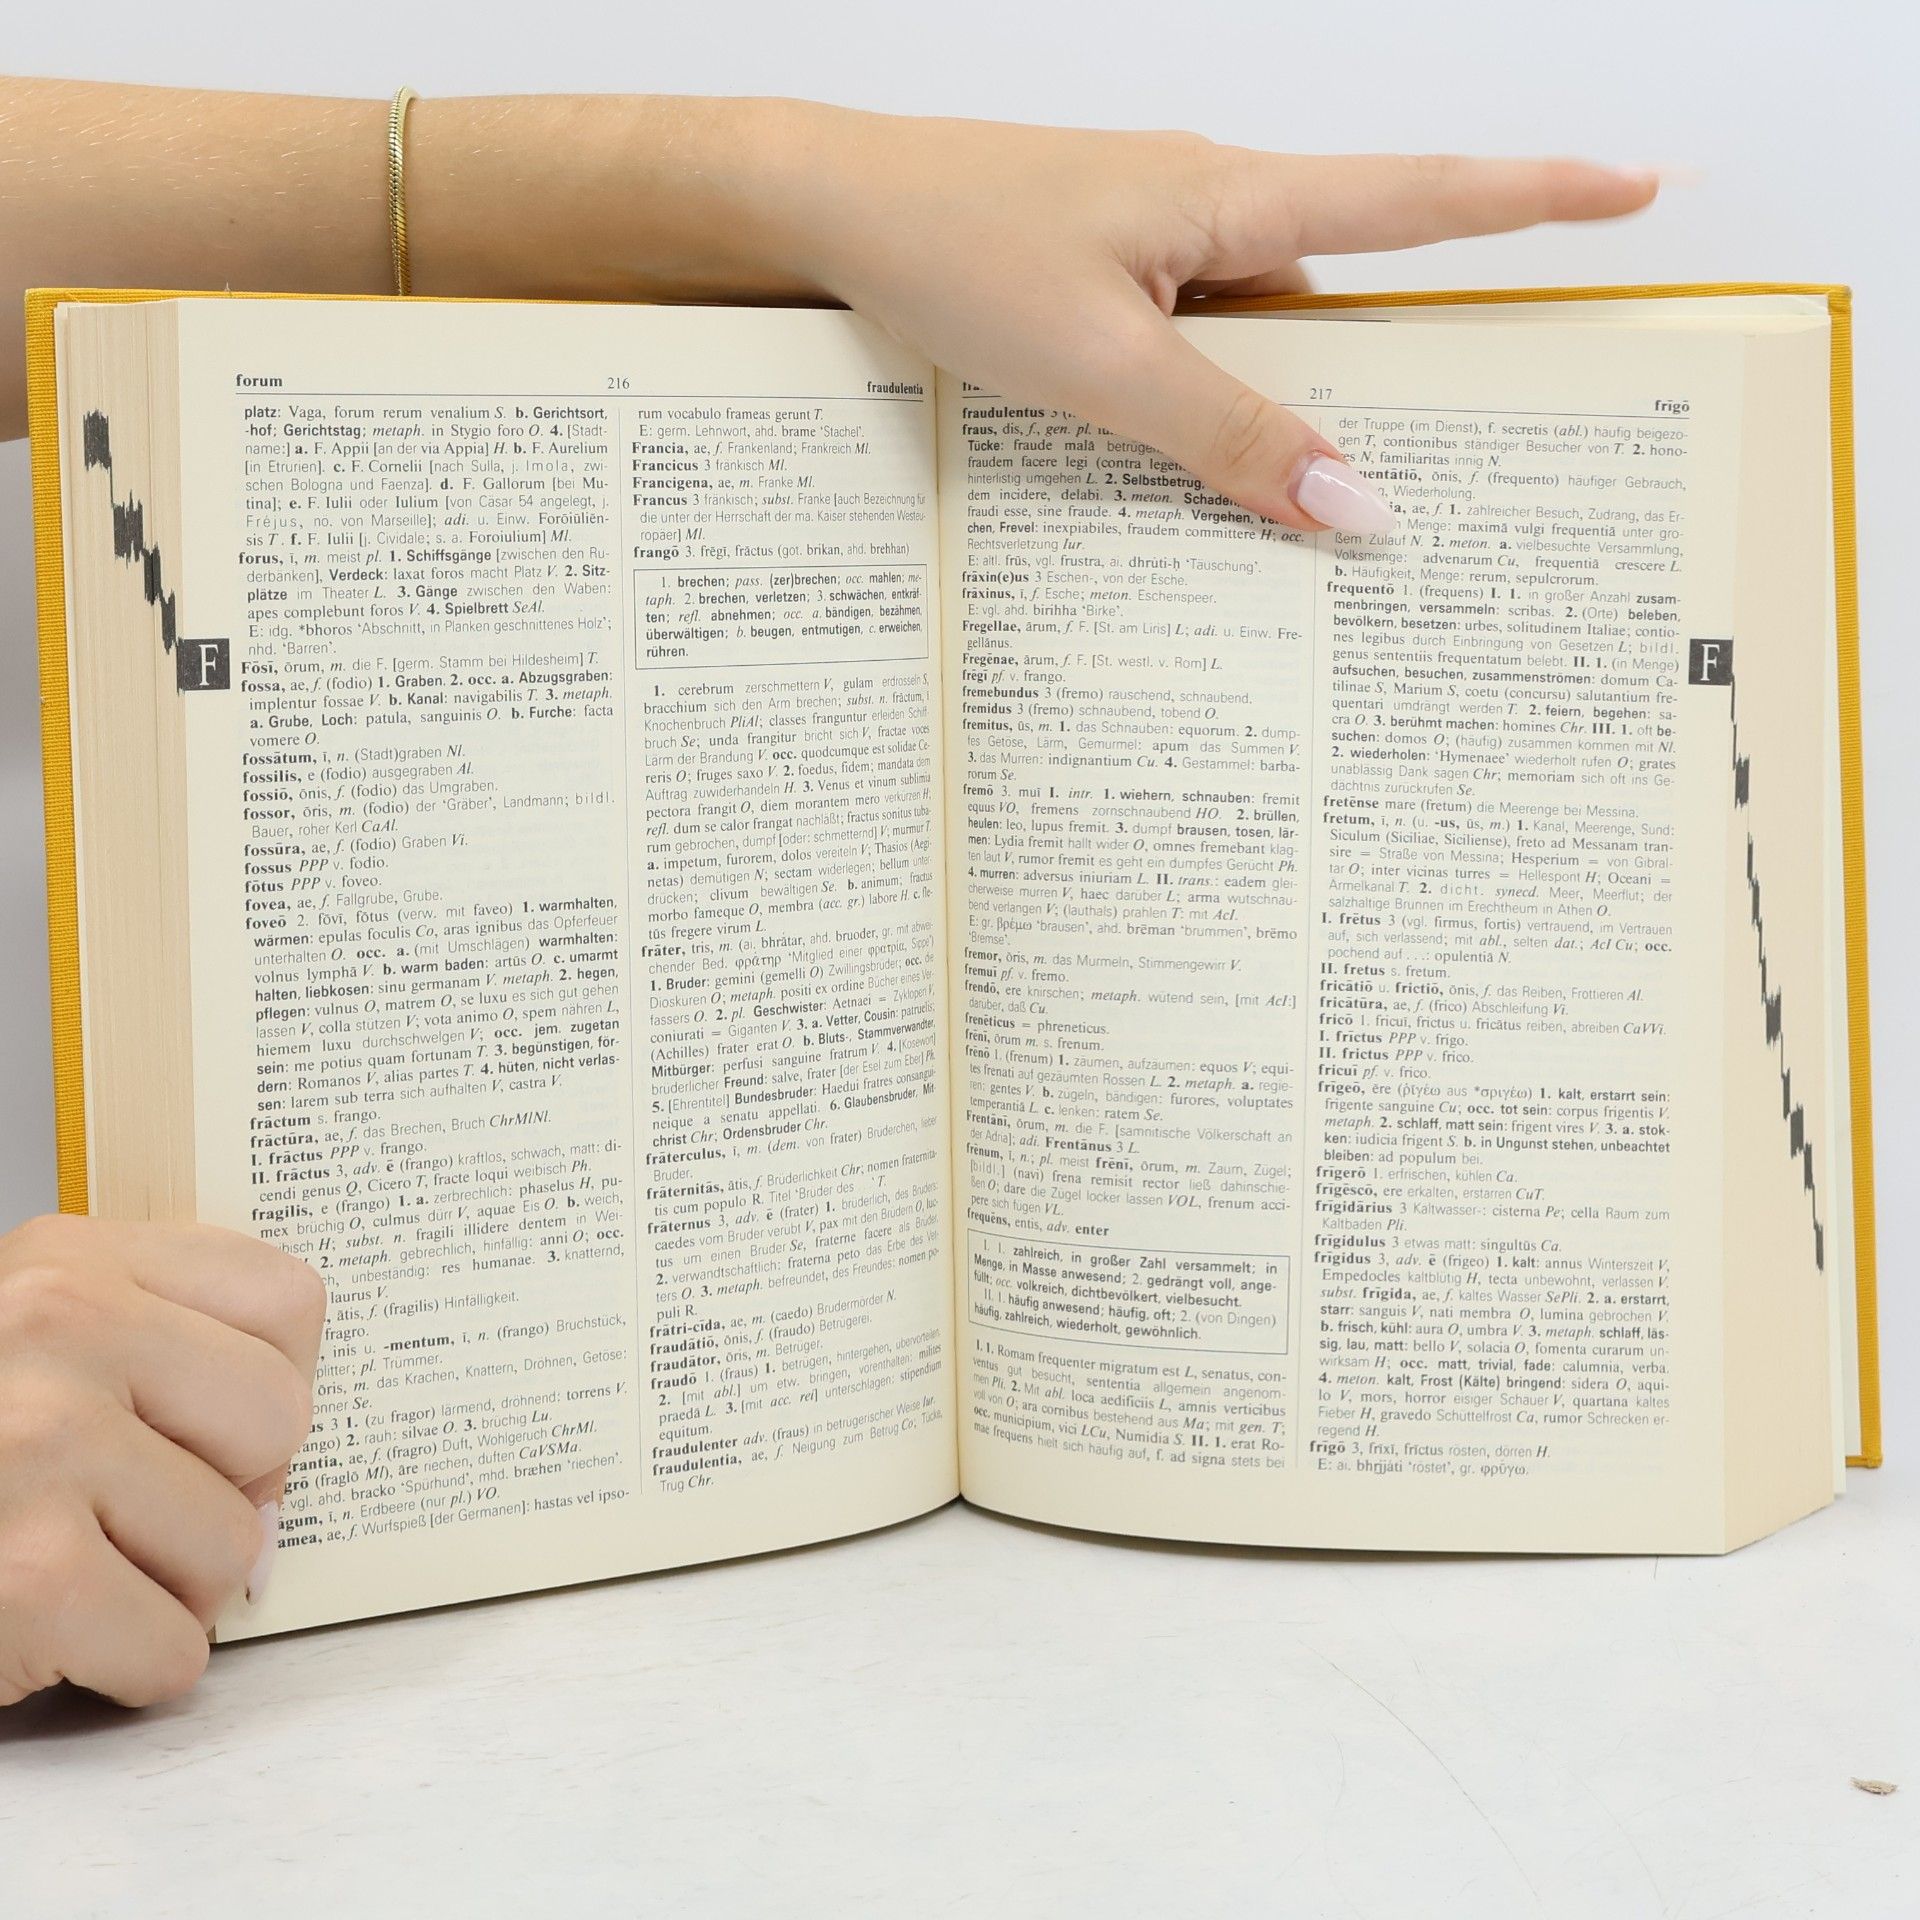 forum
216
fraudulentia
platz: Vaga, forum rerum venalium S. b. Gerichtsort,
-hof; Gerichtstag; metaph. in Stygio foro O. 4. [Stadt-
name:] a. F. Appii [an der via Appia] H. b. F. Aurelium
[in Etrurien]. c. F. Cornelii [nach Sulla, j. Imola, zwi-
schen Bologna und Faenza]. d. F. Gallorum [bei Mu-
tina]; e. F. Iulii oder Iulium [von Cäsar 54 angelegt, j.
Fréjus, no. von Marseille]; adi. u. Einw. Foroiūliēn-
sis T. f. F. Iulii [j. Cividale; s. a. Foroiulium] Ml.
forus, ī, m. meist pl. 1. Schiffsgänge [zwischen den Ru-
derbänken], Verdeck: laxat foros macht Platz V. 2. Sitz-
plätze im Theater L. 3. Gänge zwischen den Waben:
apes complebunt foros V. 4. Spielbrett SeAl.
E: idg. *bhoros ‘Abschnitt, in Planken geschnittenes Holz’;
nhd. ‘Barren’.
Fōsī, ōrum, m. die F. [germ. Stamm bei Hildesheim] T.
fossa, ae, f. (fodio) 1. Graben. 2. occ. a. Abzugsgraben:
implentur fossae V. b. Kanal: navigabilis T. 3. metaph.
a. Grube, Loch: patula, sanguinis O. b. Furche: facta
vomere O.
fossātum, ī, n. (Stadt)graben Nl.
fossilis, e (fodio) ausgegraben Al.
fossiō, ōnis, f. (fodio) das Umgraben.
fossor, ōris, m. (fodio) der ‘Gräber’, Landmann; bildl.
Bauer, roher Kerl CaAl.
fossūra, ae, f. (fodio) Graben Vi.
fossus PPP v. fodio.
fōtus PPP v. foveo.
fovea, ae, f. Fallgrube, Grube.
foveō 2. fōvī, fōtus (verw. mit faveo) 1. warmhalten,
wärmen: epulas foculis Co, aras ignibus das Opferfeuer
unterhalten O. occ. a. (mit Umschlägen) warmhalten:
volnus lymphā V. b. warm baden: artūs O. c. umarmt
halten, liebkosen: sinu germanam V. metaph. 2. hegen,
pflegen: vulnus O, matrem O, se luxu es sich gut gehen
lassen V, colla stützen V; vota animo O, spem nähren L,
hiemem luxu durchschwelgen V; occ. jem. zugetan
sein: me potius quam fortunam T. 3. begünstigen, för-
dern: Romanos V, alias partes T. 4. hüten, nicht verlas-
sen: larem sub terra sich aufhalten V, castra V.
frāctum s. frango.
frāctūra, ae, f. das Brechen, Bruch ChrMlNl.
I. frāctus PPP v. frango.
II. frāctus 3, adv. ē (frango) kraftlos, schwach, matt: di-
cendi genus Q, Cicero T, fracte loqui weibisch Ph.
fragilis, e (frango) 1. a. zerbrechlich: phaselus H, pu-
mex brüchig O, culmus dürr V, aquae Eis O. b. weich,
bisch H; subst. n. fragili illidere dentem in Wei-
2. metaph. gebrechlich, hinfällig: anni O; occ.
ch, unbeständig: res humanae. 3. knatternd,
laurus V.
ātis, f. (fragilis) Hinfälligkeit.
fragro.
, inis u. -mentum, ī, n. (frango) Bruchstück,
plitter; pl. Trümmer.
ōris, m. das Krachen, Knattern, Dröhnen, Getöse:
onner Se.
us 3 1. (zu fragor) lärmend, dröhnend: torrens V.
ango) 2. rauh: silvae O. 3. brüchig Lu.
grantia, ae, f. (fragro) Duft, Wohlgeruch ChrMl.
grō (fraglō Ml), āre riechen, duften CaVSMa.
vgl. ahd. bracko ‘Spürhund’, mhd. bræhen ‘riechen’.
āgum, ī, n. Erdbeere (nur pl.) VO.
amea, ae, f. Wurfspieß [der Germanen]: hastas vel ipso-
rum vocabulo frameas gerunt T.
E: germ. Lehnwort, ahd. brame ‘Stachel’.
Francia, ae, f. Frankenland; Frankreich Ml.
Francicus 3 fränkisch Ml.
Francigena, ae, m. Franke Ml.
Francus 3 fränkisch; subst. Franke [auch Bezeichnung für
die unter der Herrschaft der ma. Kaiser stehenden Westeu-
ropaer] Ml.
frangō 3. frēgī, frāctus (got. brikan, ahd. brehhan)
1. brechen; pass. (zer)brechen; occ. mahlen; me-
taph. 2. brechen, verletzen; 3. schwächen, entkräf-
ten; refl. abnehmen; occ. a. bändigen, bezähmen,
überwältigen; b. beugen, entmutigen, c. erweichen,
rühren.
1. cerebrum zerschmettern V, gulam erdrosseln S,
bracchium sich den Arm brechen; subst. n. frāctum, i
Knochenbruch PliAl; classes franguntur erleiden Schiff-
bruch Se; unda frangitur bricht sich V, fractae voces
Lärm der Brandung V. occ. quodcumque est solidae Ce-
reris O; fruges saxo V. 2. foedus, fidem; mandata dem
Auftrag zuwiderhandeln H. 3. Venus et vinum sublimia
pectora frangit O, diem morantem mero verkürzen H;
refl. dum se calor frangat nachläßt; fractus sonitus tuba-
rum gebrochen, dumpf [oder: schmetternd] V; murmur T.
a. impetum, furorem, dolos vereiteln V; Thasios (Aegi-
netas) demütigen N; sectam widerlegen; bellum unter-
drücken; clivum bewältigen Se. b. animum; fractus
morbo fameque O, membra (acc. gr.) labore H. c. fle-
tūs fregere virum L.
frāter, tris, m. (ai. bhrātar, ahd. bruoder, gr. mit abwei-
chender Bed. φράτηρ ‘Mitglied einer φρατρία, Sippe’)
1. Bruder: gemini (gemelli O) Zwillingsbrüder; occ. die
Dioskuren O; metaph. positi ex ordine Bücher eines Ver-
fassers O. 2. pl. Geschwister: Aetnaei = Zyklopen V,
coniurati = Giganten V. 3. a. Vetter, Cousin: patruelis;
(Achilles) frater erat O. b. Bluts-, Stammverwandter,
Mitbürger: perfusi sanguine fratrum V. 4. [Kosewort]
brüderlicher Freund: salve, frater [der Esel zum Eber] Ph.
5. [Ehrentitel] Bundesbruder: Haedui fratres consangui-
neique a senatu appellati. 6. Glaubensbruder, Mit-
christ Chr; Ordensbruder Chr.
frāterculus, ī, m. (dem. von frater) Brüderchen, lieber
Bruder.
frāternitās, ātis, f. Brüderlichkeit Chr; nomen fraternita-
tis cum populo R. Titel ‘Brüder des T.
frāternus 3, adv. ē (frater) 1. brüderlich, des Bruders:
caedes vom Bruder verübt V, pax mit den Brüdern O, luc-
tus um einen Bruder Se, fraterne facere als Bruder.
2. verwandtschaftlich: fraterna peto das Erbe des Vet-
ters O. 3. metaph. befreundet, des Freundes: nomen po-
puli R.
frātri-cīda, ae, m. (caedo) Brudermörder N.
fraudātiō, ōnis, f. (fraudo) Betrügerei.
fraudātor, ōris, m. Betrüger.
fraudō 1. (fraus) 1. betrügen, hintergehen, übervorteilen.
2. [mit abl.] um etw. bringen, vorenthalten: milites
praedā L. 3. [mit acc. rei] unterschlagen: stipendium
equitum.
fraudulenter adv. (fraus) in betrügerischer Weise Iur.
fraudulentia, ae, f. Neigung zum Betrug Co; Tücke,
Trug Chr.
F
217
frīgō
fraudulentus 3
fraus, dis, f., gen. pl.
Tücke: fraude malā
fraudem facere legi (contra
hinterlistig umgehen L. 2. Selbstbetrug,
dem incidere, delabi. 3. meton. Schaden,
fraudi esse, sine fraude. 4. metaph. Vergehen,
chen, Frevel: inexpiabiles, fraudem committere H; occ.
Rechtsverletzung Iur.
E: altl. frūs, vgl. frustra, ai. dhrúti-h ‘Täuschung’.
frāxin(e)us 3 Eschen-, von der Esche.
frāxinus, ī, f. Esche; meton. Eschenspeer.
E: vgl. ahd. birihha ‘Birke’.
Fregellae, ārum, f. F. [St. am Liris] L; adi. u. Einw. Fre-
gellānus.
Fregēnae, ārum, f. F. [St. westl. v. Rom] L.
frēgī pf. v. frango.
fremebundus 3 (fremo) rauschend, schnaubend.
fremidus 3 (fremo) schnaubend, tobend O.
fremitus, ūs, m. 1. das Schnauben: equorum. 2. dump-
fes Getöse, Lärm, Gemurmel: apum das Summen V.
3. das Murren: indignantium Cu. 4. Gestammel: barba-
rorum Se.
fremō 3. muī I. intr. 1. wiehern, schnauben: fremit
equus VO, fremens zornschnaubend HO. 2. brüllen,
heulen: leo, lupus fremit. 3. dumpf brausen, tosen, lär-
men: Lydia fremit hallt wider O, omnes fremebant klag-
ten laut V, rumor fremit es geht ein dumpfes Gerücht Ph.
4. murren: adversus iniuriam L. II. trans.: eadem glei-
cherweise murren V, haec darüber L; arma wutschnau-
bend verlangen V; (lauthals) prahlen T: mit AcI.
E: gr. βρέμω ‘brausen’, ahd. brēman ‘brummen’, brēmo
‘Bremse’.
fremor, ōris, m. das Murmeln, Stimmengewirr V.
fremuī pf. v. fremo.
frendō, ere knirschen; metaph. wütend sein, [mit AcI:]
darüber, daß Cu.
frenēticus = phreneticus.
frēnī, ōrum m. s. frenum.
frēnō 1. (frenum) 1. zäumen, aufzäumen: equos V; equi-
tes frenati auf gezäumten Rossen L. 2. metaph. a. regie-
ren; gentes V. b. zügeln, bändigen: furores, voluptates
temperantiā L. c. lenken: ratem Se.
Frentānī, ōrum, m. die F. [samnitische Völkerschaft an
der Adria]; adi. Frentānus 3 L.
frēnum, ī, n.; pl. meist frēnī, ōrum, m. Zaum, Zügel;
[bildl.] (navi) frena remisit rector ließ dahinschie-
ßen O; dare die Zügel locker lassen VOL, frenum acci-
pere sich fügen VL.
frequēns, entis, adv. enter
I. 1. zahlreich, in großer Zahl versammelt; in
Menge, in Masse anwesend; 2. gedrängt voll, ange-
füllt; occ. volkreich, dichtbevölkert, vielbesucht.
II. 1. häufig anwesend; häufig, oft; 2. (von Dingen)
häufig, zahlreich, wiederholt, gewöhnlich.
I. 1. Romam frequenter migratum est L, senatus, con-
ventus gut besucht, sententia allgemein angenom-
men Pli. 2. Mit abl. loca aedificiis L, amnis verticibus
voll von O; ara cornibus bestehend aus Ma; mit gen. T;
occ. municipium, vici LCu, Numidia S. II. 1. erat Ro-
mae frequens hielt sich häufig auf, f. ad signa stets bei
der Truppe (im Dienst), f. secretis (abl.) häufig beigezo-
gen T, contionibus ständiger Besucher von T. 2. hono-
res N, familiaritas innig N.
uentātiō, ōnis, f. (frequento) häufiger Gebrauch,
Wiederholung.
ia, ae, f. 1. zahlreicher Besuch, Zudrang, das Er-
Menge: maximā vulgi frequentiā unter gro-
ßem Zulauf N. 2. meton. a. vielbesuchte Versammlung,
Volksmenge: advenarum Cu, frequentiā crescere L.
b. Häufigkeit, Menge: rerum, sepulcrorum.
frequentō 1. (frequens) I. 1. in großer Anzahl zusam-
menbringen, versammeln: scribas. 2. (Orte) beleben,
bevölkern, besetzen: urbes, solitudinem Italiae; contio-
nes legibus durch Einbringung von Gesetzen L; bildl.
genus sententiis frequentatum belebt. II. 1. (in Menge)
aufsuchen, besuchen, zusammenströmen: domum Ca-
tilinae S, Marium S, coetu (concursu) salutantium fre-
quentari umdrängt werden T. 2. feiern, begehen: sa-
cra O. 3. berühmt machen: homines Chr. III. 1. oft be-
suchen: domos O; (häufig) zusammen kommen mit Nl.
2. wiederholen: ‘Hymenaee’ wiederholt rufen O; grates
unablässig Dank sagen Chr; memoriam sich oft ins Ge-
dächtnis zurückrufen Se.
fretēnse mare (fretum) die Meerenge bei Messina.
fretum, ī, n. (u. -us, ūs, m.) 1. Kanal, Meerenge, Sund:
Siculum (Siciliae, Siciliense), freto ad Messanam tran-
sire = Straße von Messina; Hesperium = von Gibral-
tar O; inter vicinas turres = Hellespont H; Oceani =
Ärmelkanal T. 2. dicht. synecd. Meer, Meerflut; der
salzhaltige Brunnen im Erechtheum in Athen O.
I. frētus 3 (vgl. firmus, fortis) vertrauend, im Vertrauen
auf, sich verlassend; mit abl., selten dat.; AcI Cu; occ.
pochend auf . . .: opulentiā N.
II. fretus s. fretum.
fricātiō u. frictiō, ōnis, f. das Reiben, Frottieren Al.
fricātūra, ae, f. (frico) Abschleifung Vi.
fricō 1. fricuī, frictus u. fricātus reiben, abreiben CaVVi.
I. frictus PPP v. frigo.
II. frictus PPP v. frico.
fricuī pf. v. frico.
frīgeō, ēre (ῥιγέω aus *σριγέω) 1. kalt, erstarrt sein:
frigente sanguine Cu; occ. tot sein: corpus frigentis V.
metaph. 2. schlaff, matt sein: frigent vires V. 3. a. stok-
ken: iudicia frigent S. b. in Ungunst stehen, unbeachtet
bleiben: ad populum bei.
frīgerō 1. erfrischen, kühlen Ca.
frīgēscō, ere erkalten, erstarren CuT.
frīgidārius 3 Kaltwasser-: cisterna Pe; cella Raum zum
Kaltbaden Pli.
frīgidulus 3 etwas matt: singultūs Ca.
frīgidus 3, adv. ē (frigeo) 1. kalt: annus Winterszeit V,
Empedocles kaltblütig H, tecta unbewohnt, verlassen V.
subst. frīgida, ae, f. kaltes Wasser SePli. 2. a. erstarrt,
starr: sanguis V, nati membra O, lumina gebrochen V.
b. frisch, kühl: aura O, umbra V. 3. metaph. schlaff, läs-
sig, lau, matt: bello V, solacia O, fomenta curarum un-
wirksam H; occ. matt, trivial, fade: calumnia, verba.
4. meton. kalt, Frost (Kälte) bringend: sidera O, aqui-
lo V, mors, horror eisiger Schauer V, quartana kaltes
Fieber H, gravedo Schüttelfrost Ca, rumor Schrecken er-
regend H.
frīgō 3, frīxī, frīctus rösten, dörren H.
E: ai. bhṛjjáti ‘röstet’, gr. φρύγω.
F